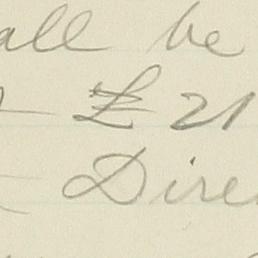 all be
£21
Dire